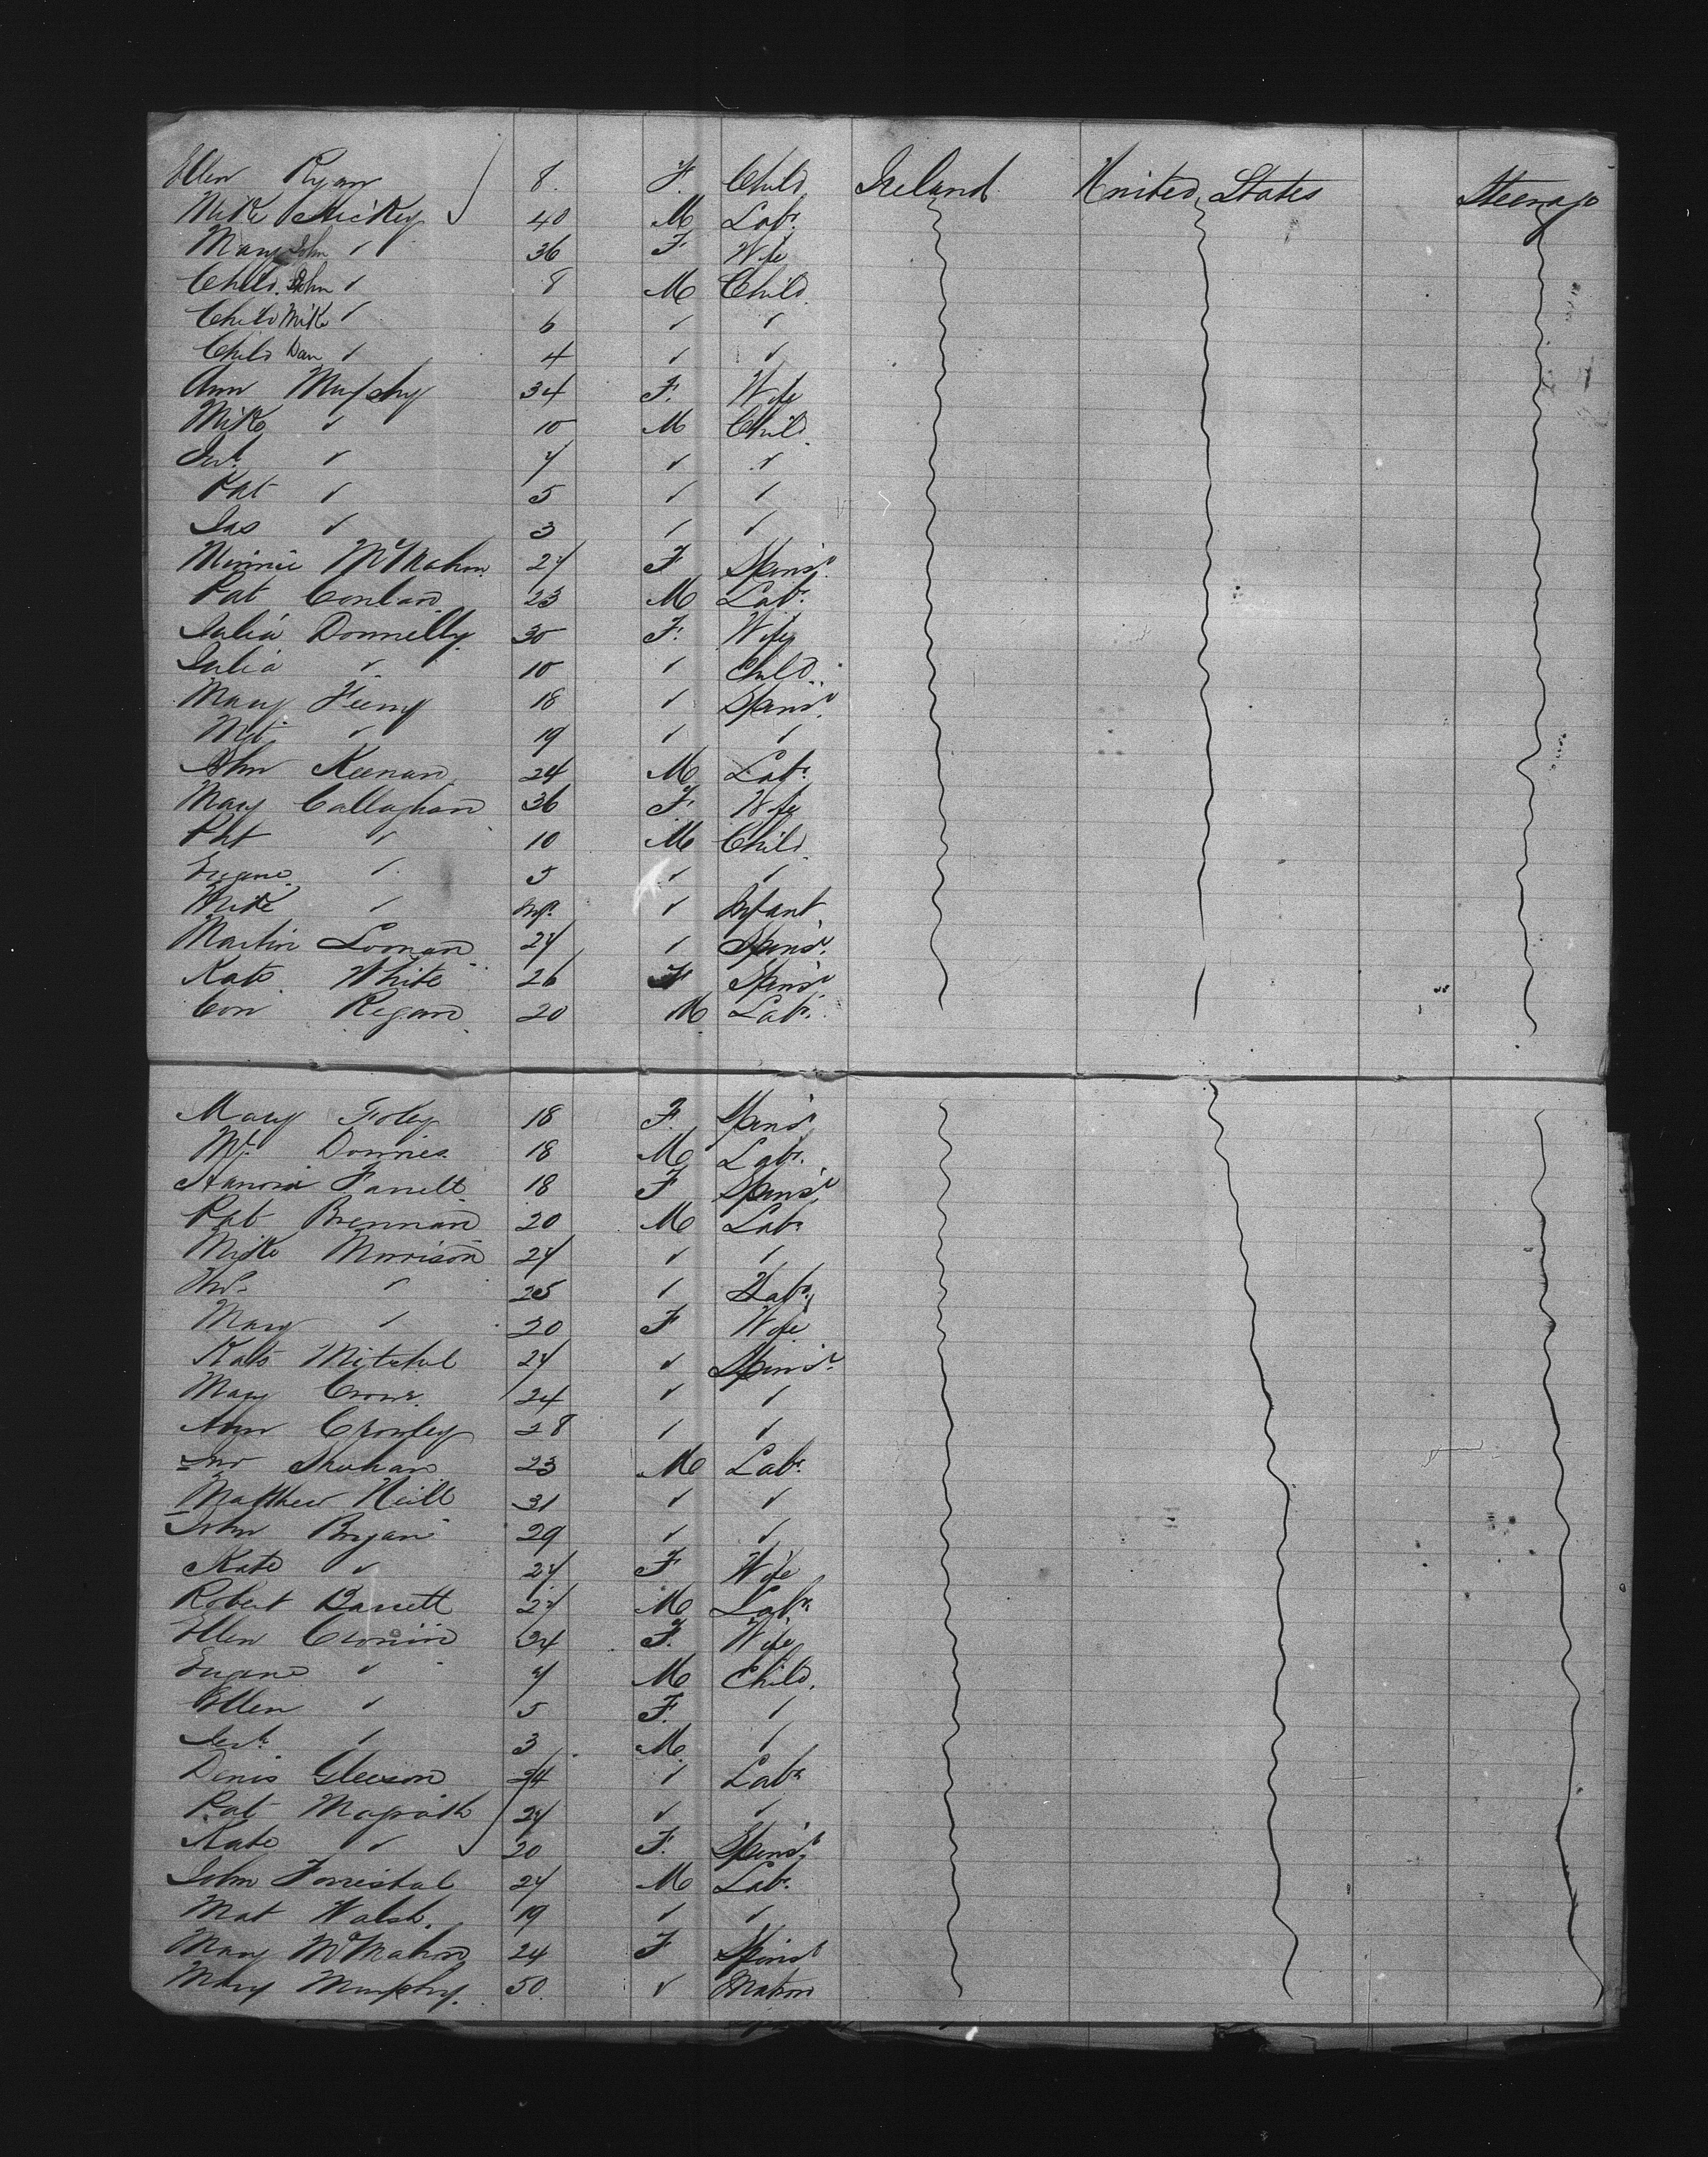 Ellen Ryan 8. F. Child Ireland United States Steerage
Mike Hickey 40 M Labr.
Mary John ✓ 36 F Wife
Child John ✓ 8 M Child.
Child Mike ✓ 6 ✓ ✓
Child Dan ✓ 4 ✓ ✓
Ann Murphy 34 F. Wife
Mike ✓ 10 M Child.
Jerh. ✓ 7 ✓ ✓
Pat ✓ 5 ✓ ✓
Jas ✓ 3 ✓ ✓
Minnie McMahon 27 F Spinsr.
Pat Conlan 23 M Labr.
Julia Donnelly 30 F. Wife
Julia ✓ 10 ✓ Child.
Mary Feeny 18 ✓ Spinsr.
✓ 19 ✓ ✓
John Keenan 24 M Labr.
Mary Callaghan 36 F. Wife
Pat ✓ 10 M Child.
Eugene ✓ 5 ✓ ✓
Mike ✓ Inft. ✓ Infant.
Martin Loonan 27 ✓ Spinsr.
Kate White 26 F Spinsr
Con Regan 20 M Labr.
Mary Foley 18 F. Spinsr
18 M Labr.
Hanora Farrell 18 F Spinsr
Pat Brennan 20 M Labr
Mike Morrison 27 ✓ ✓
✓ 25 ✓ Labr.
Mary ✓ 20 F Wife
Kate Mitchel 27 ✓ Spinsr.
Mary Crowe 24 ✓ ✓
Ann Crowley 28 ✓ ✓
Jno Shehan 23 M Labr.
Matthew Neill 31 ✓ ✓
John Bryan 29 ✓ ✓
Kate ✓ 27 F Wife
Robert Barrett 27 M Labr
Ellen Cronin 34 F. Wife
Eugene ✓ 7 M Child.
Ellen ✓ 5 F. ✓
Jerh. ✓ 3 M. ✓
Denis Gleeson 24 ✓ Labr
Pat Magrath 27 ✓ ✓
Kate ✓ 20 F. Spinsr
John Forristal 27 M Labr.
Mat Walsh. 19 ✓ ✓
Mary McMahon 24 F Spinsr
Mary Murphy. 50. ✓ Matron